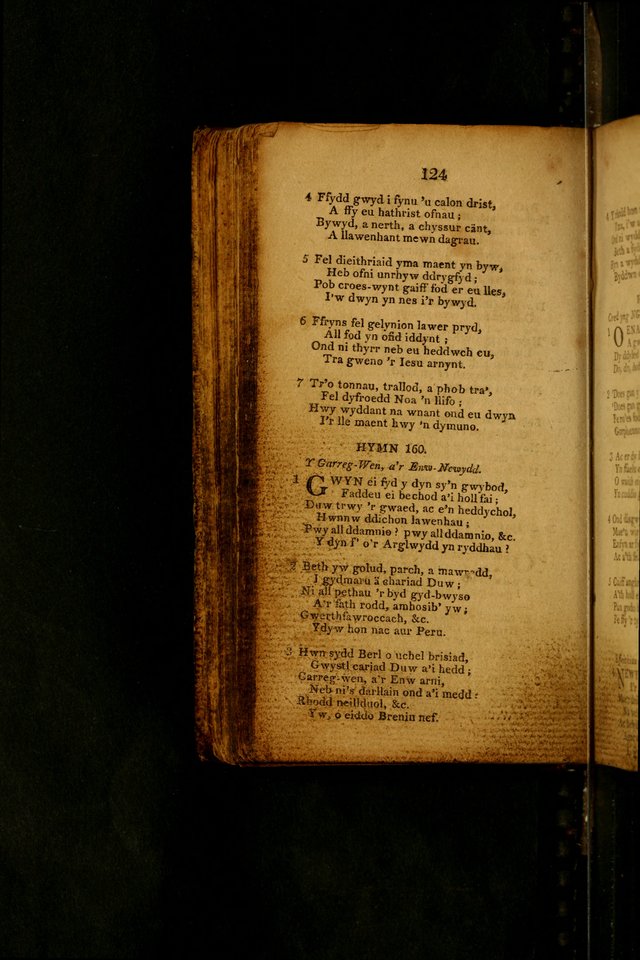 124
4 Ffydd gwyd i fynu 'u calon drist,
A ffy eu hathrist ofnau ;
Bywyd, a nerth, a chyssur cânt,
A llawenhant mewn dagrau.
5 Fel dieithriaid yma maent yn byw,
Heb ofni unrhyw ddrygfyd ;
Pob croes-wynt gaiff fod er eu lles,
I'w dwyn yn nes i'r bywyd.
6 Ffryns fel gelynion lawer pryd,
All fod yn ofid iddynt ;
Ond ni thyrr neb eu heddwch eu,
Tra gweno 'r Iesu arnynt.
7 Tr'o tonnau, trallod, a phob tra',
Fel dyfroedd Noa 'n llifo ;
Hwy wyddant na wnant ond eu dwyn
I'r lle maent hwy 'n dymuno.
HYMN 160.
Y Garreg-Wen, a'r Enw-Newydd.
1 GWYN ei fyd y dyn sy'n gwybod,
Faddeu ei bechod a'i holl fai ;
Duw trwy 'r gwaed, ac e'n heddychol,
Hwnw ddichon lawenhau ;
Pwy all ddamnio ? pwy all ddamnio, &c.
Y dyn f' o'r Arglwydd yn ryddhau ?
2 Beth yw golud, parch, a mawredd,
I gydmaru â chariad Duw ;
Ni all pethau 'r byd gyd-bwyso
A'r fath rodd, amhosib' yw ;
Gwerthfawroccach, &c.
Ydyw hon nac aur Peru.
3 Hwn sydd Berl o uchel brisiad,
Gwystl cariad Duw a'i hedd ;
Carreg-wen, a'r Enw arni,
Neb ni's darllain ond a'i medd :
Rhodd neillduol, &c.
Yw, o eiddo Brenin nef.